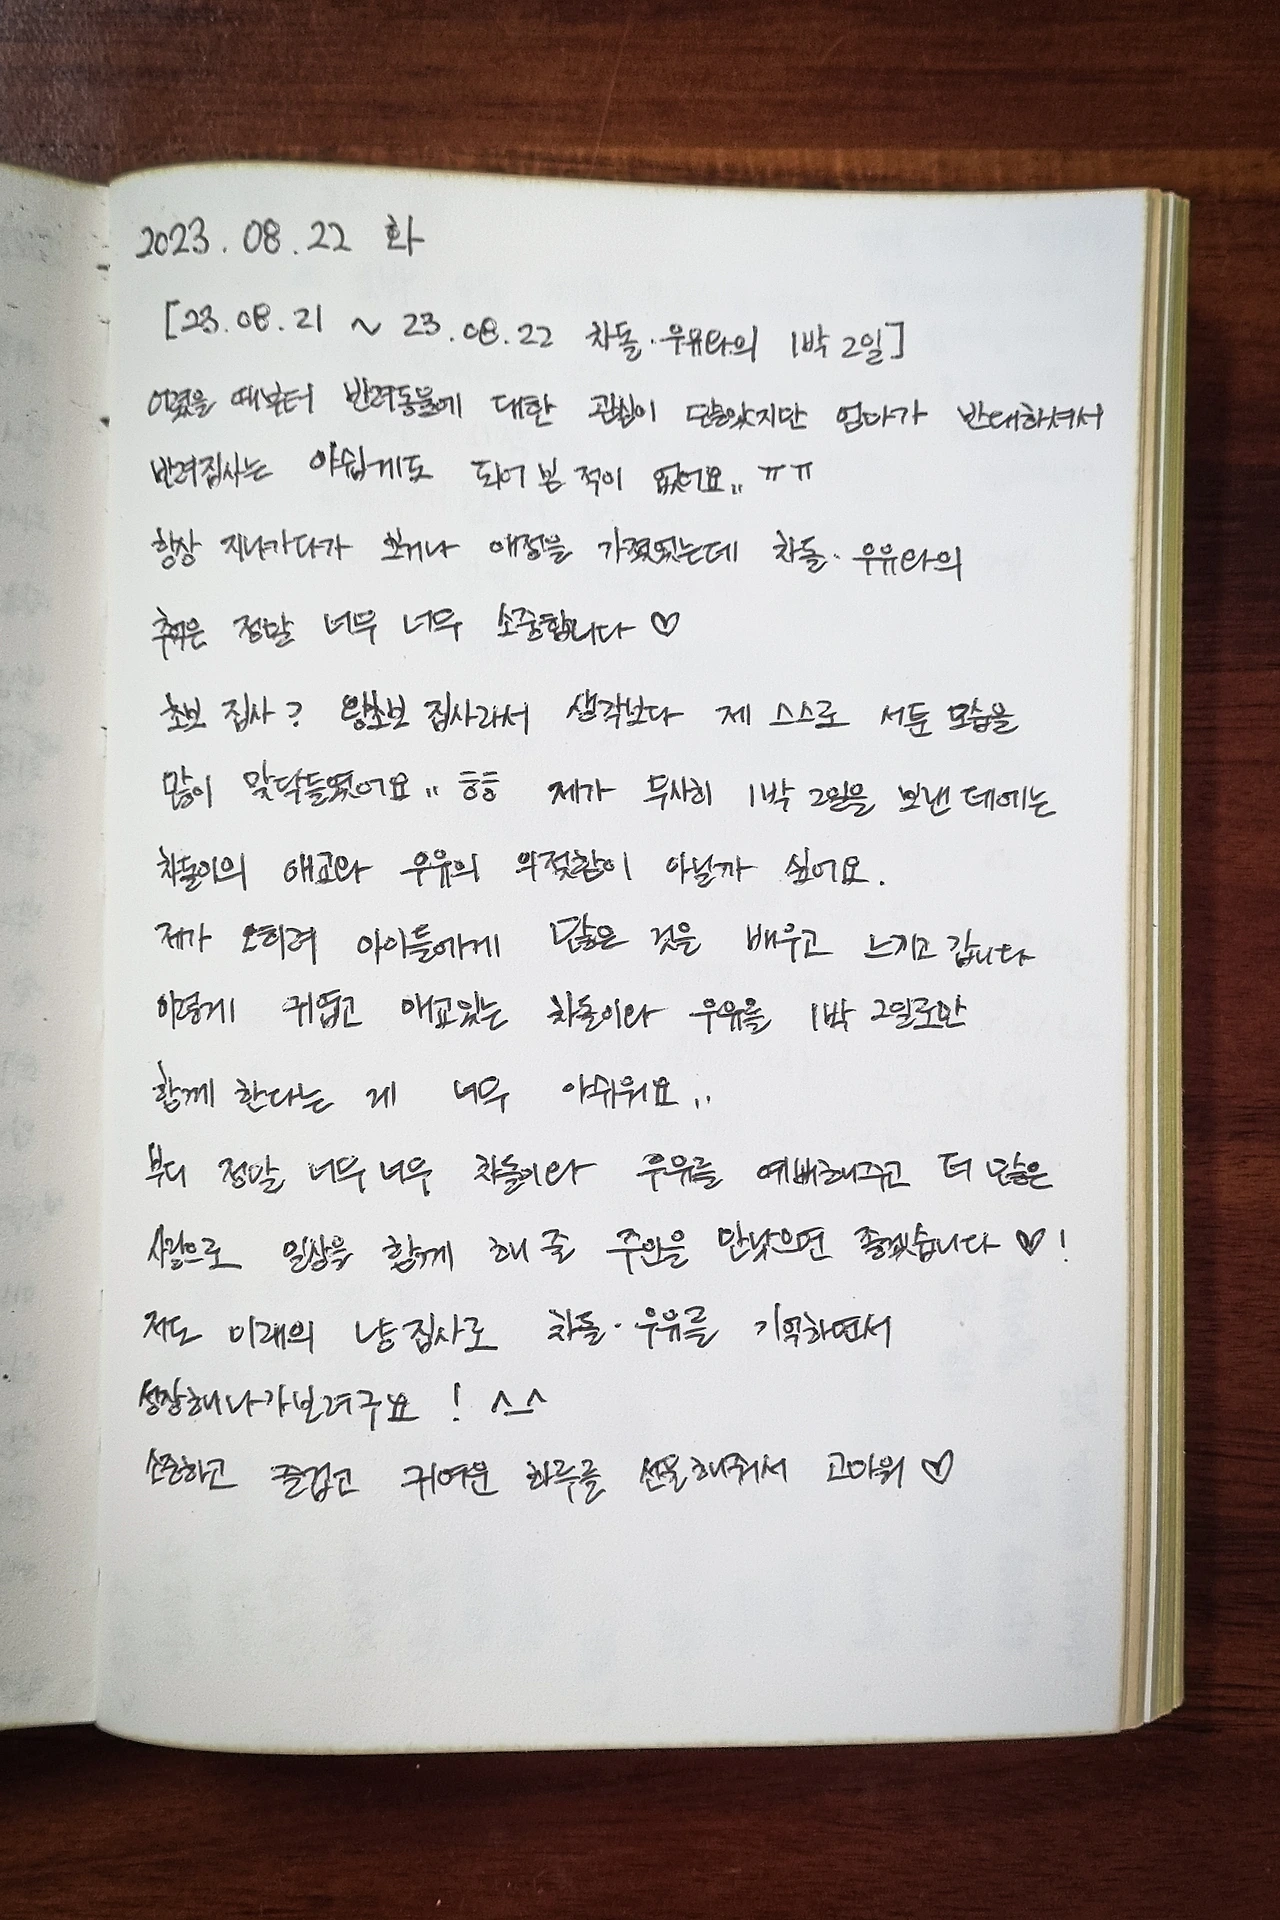 2023. 08. 22 화
[23.08.21 ~ 23.08.22 차돌·우유와의 1박 2일]
어렸을 때부터 반려동물에 대한 관심이 많았지만 엄마가 반대하셔서
반려집사는 아쉽게도 되어 본 적이 없어요.. ㅠㅠ
항상 지나가다가 보거나 애정을 가졌었는데 차돌·우유와의
추억은 정말 너무 너무 소중합니다 ♡
초보 집사? 왕초보 집사라서 생각보다 제 스스로 서툰 모습을
많이 맞닥들였어요.. ㅎㅎ 제가 무사히 1박 2일을 보낸 데에는
차돌이의 애교와 우유의 의젓함이 아닐까 싶어요.
제가 오히려 아이들에게 많은 것을 배우고 느끼고 갑니다
이렇게 귀엽고 애교있는 차돌이와 우유를 1박 2일로만
함께 한다는 게 너무 아쉬워요..
부디 정말 너무 너무 차돌이와 우유를 예뻐해주고 더 많은
사랑으로 일상을 함께 해 줄 주인을 만났으면 좋겠습니다 ♡!
저도 미래의 냥집사로 차돌·우유를 기억하면서
성장해나가보려구요! ^_^
소중하고 즐겁고 귀여운 하루를 선물해줘서 고마워 ♡